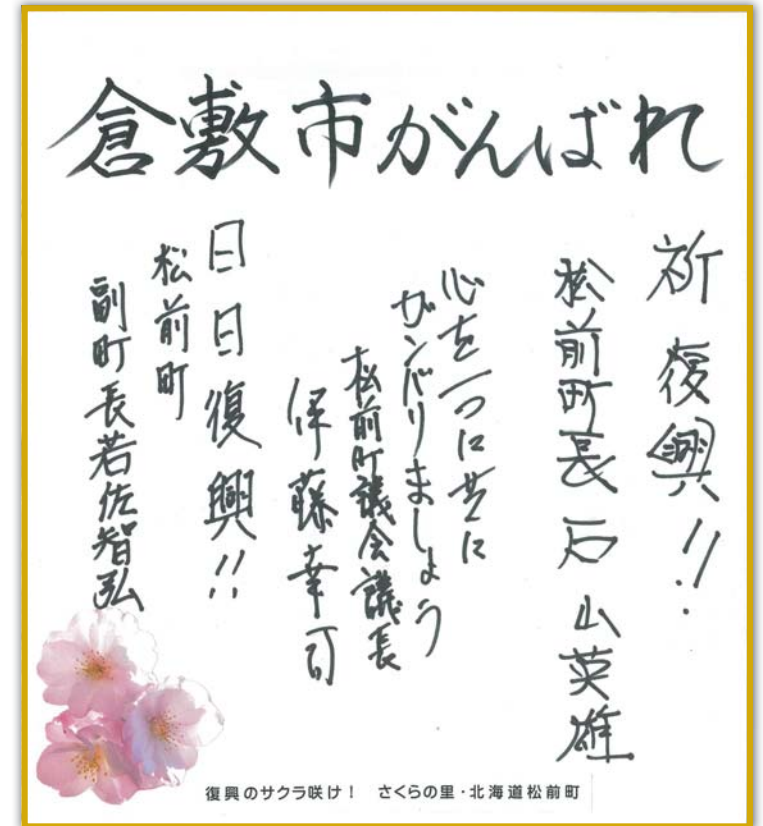 倉敷市がんばれ
祈復興!!
松前町長石山英雄
心を一つに共に
ガンバリましょう
松前町議会議長
伊藤幸司
日日復興!!
松前町
副町長若佐智弘
復興のサクラ咲け! さくらの里・北海道松前町